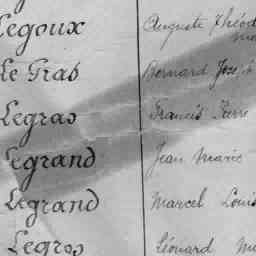 Legoux Auguste Théod
Le Gras Bernard Jose
Legras Francis Pierre
Legrand Jean Marie
Legrand Marcel Louis
Legros Léonard